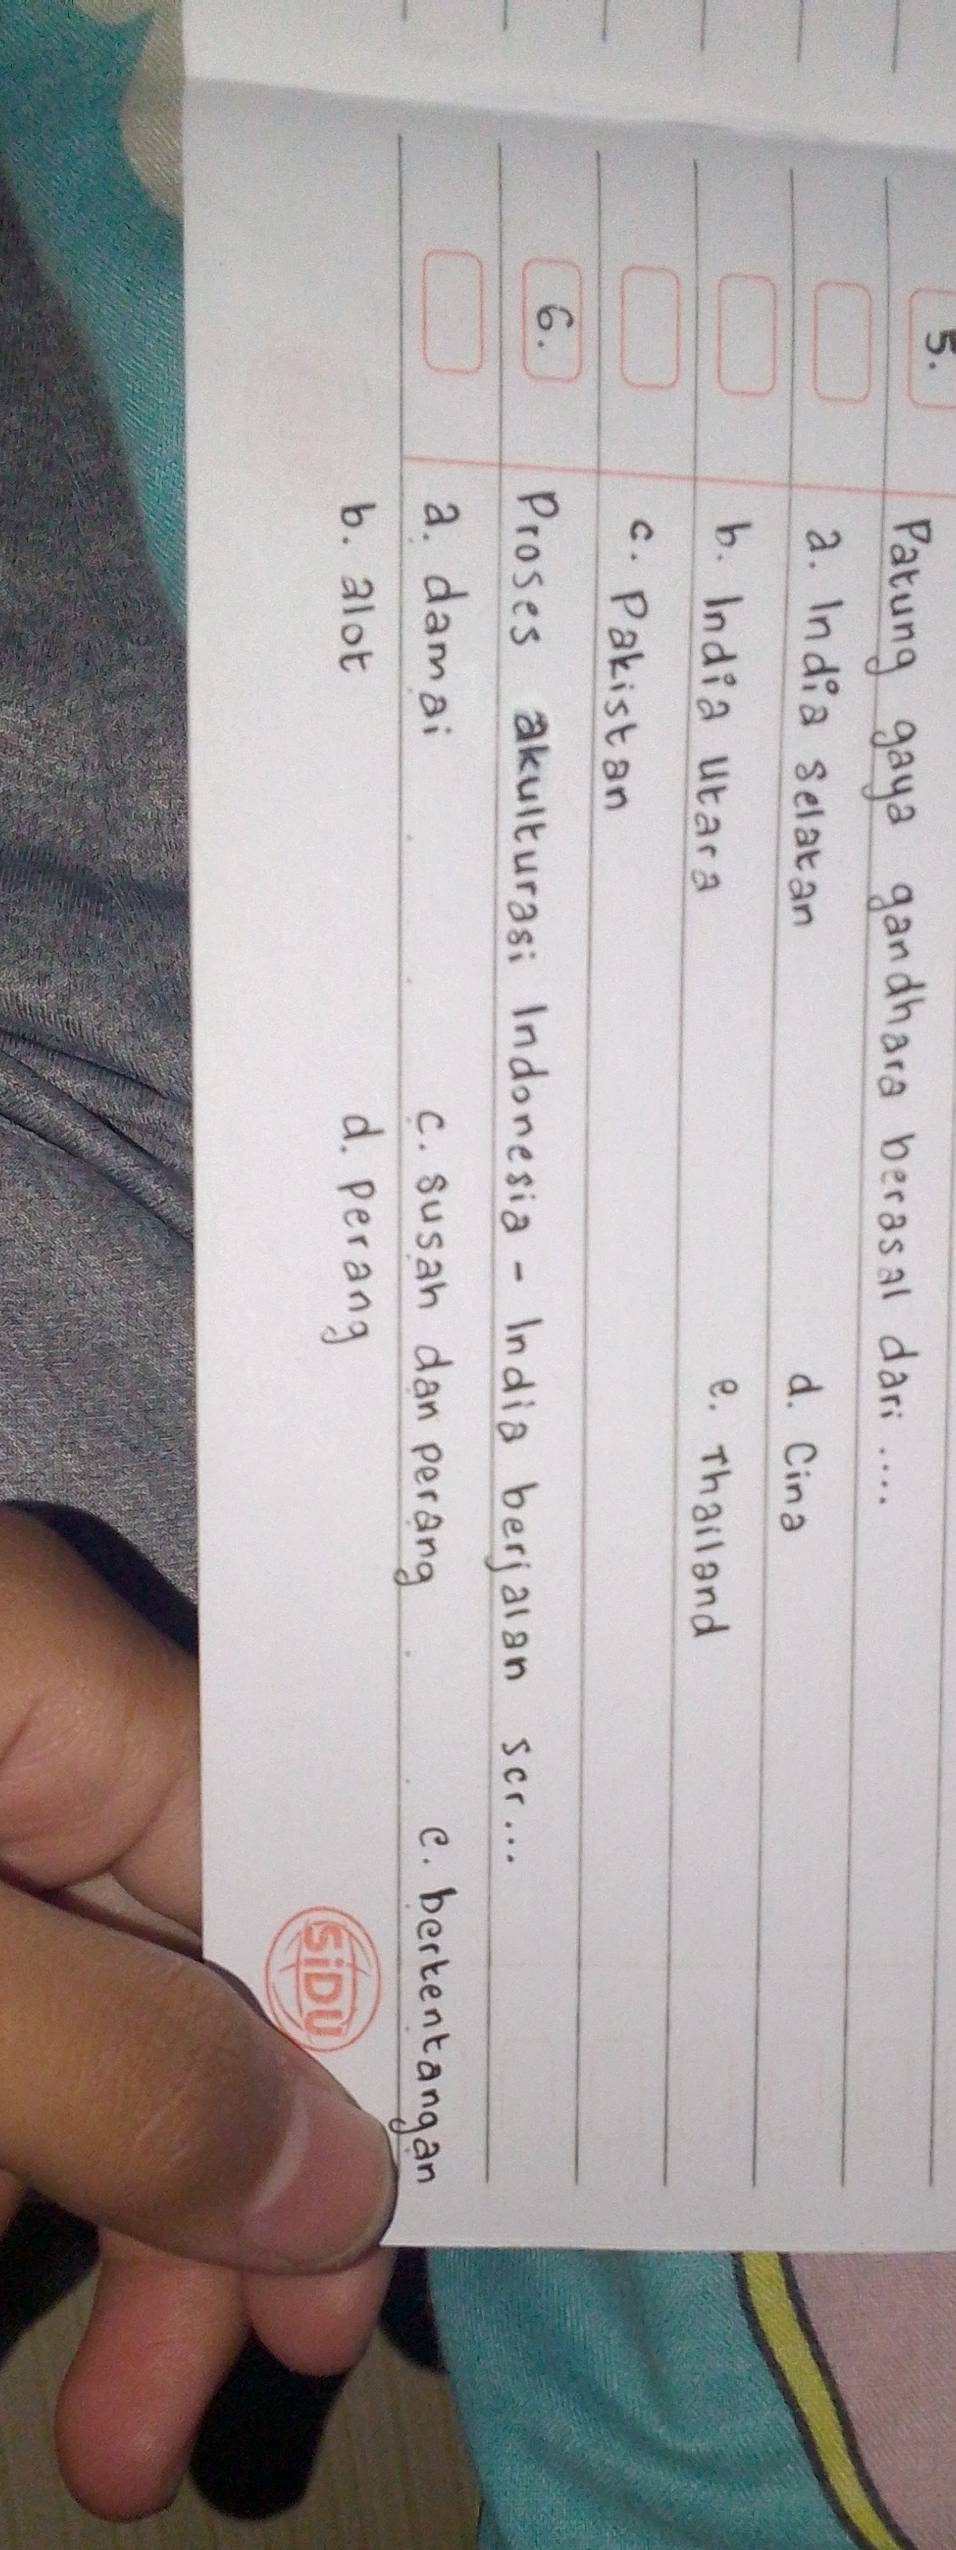 5. Patung gaya gandhara berasal dari ....
a. India selatan d. Cina
b. India utara e. Thailand
c. Pakistan
6. Proses akulturasi Indonesia - India berjalan scr...
a. damai c. susah dan perang e. bertentangan
b. alot d. perang
SiDU